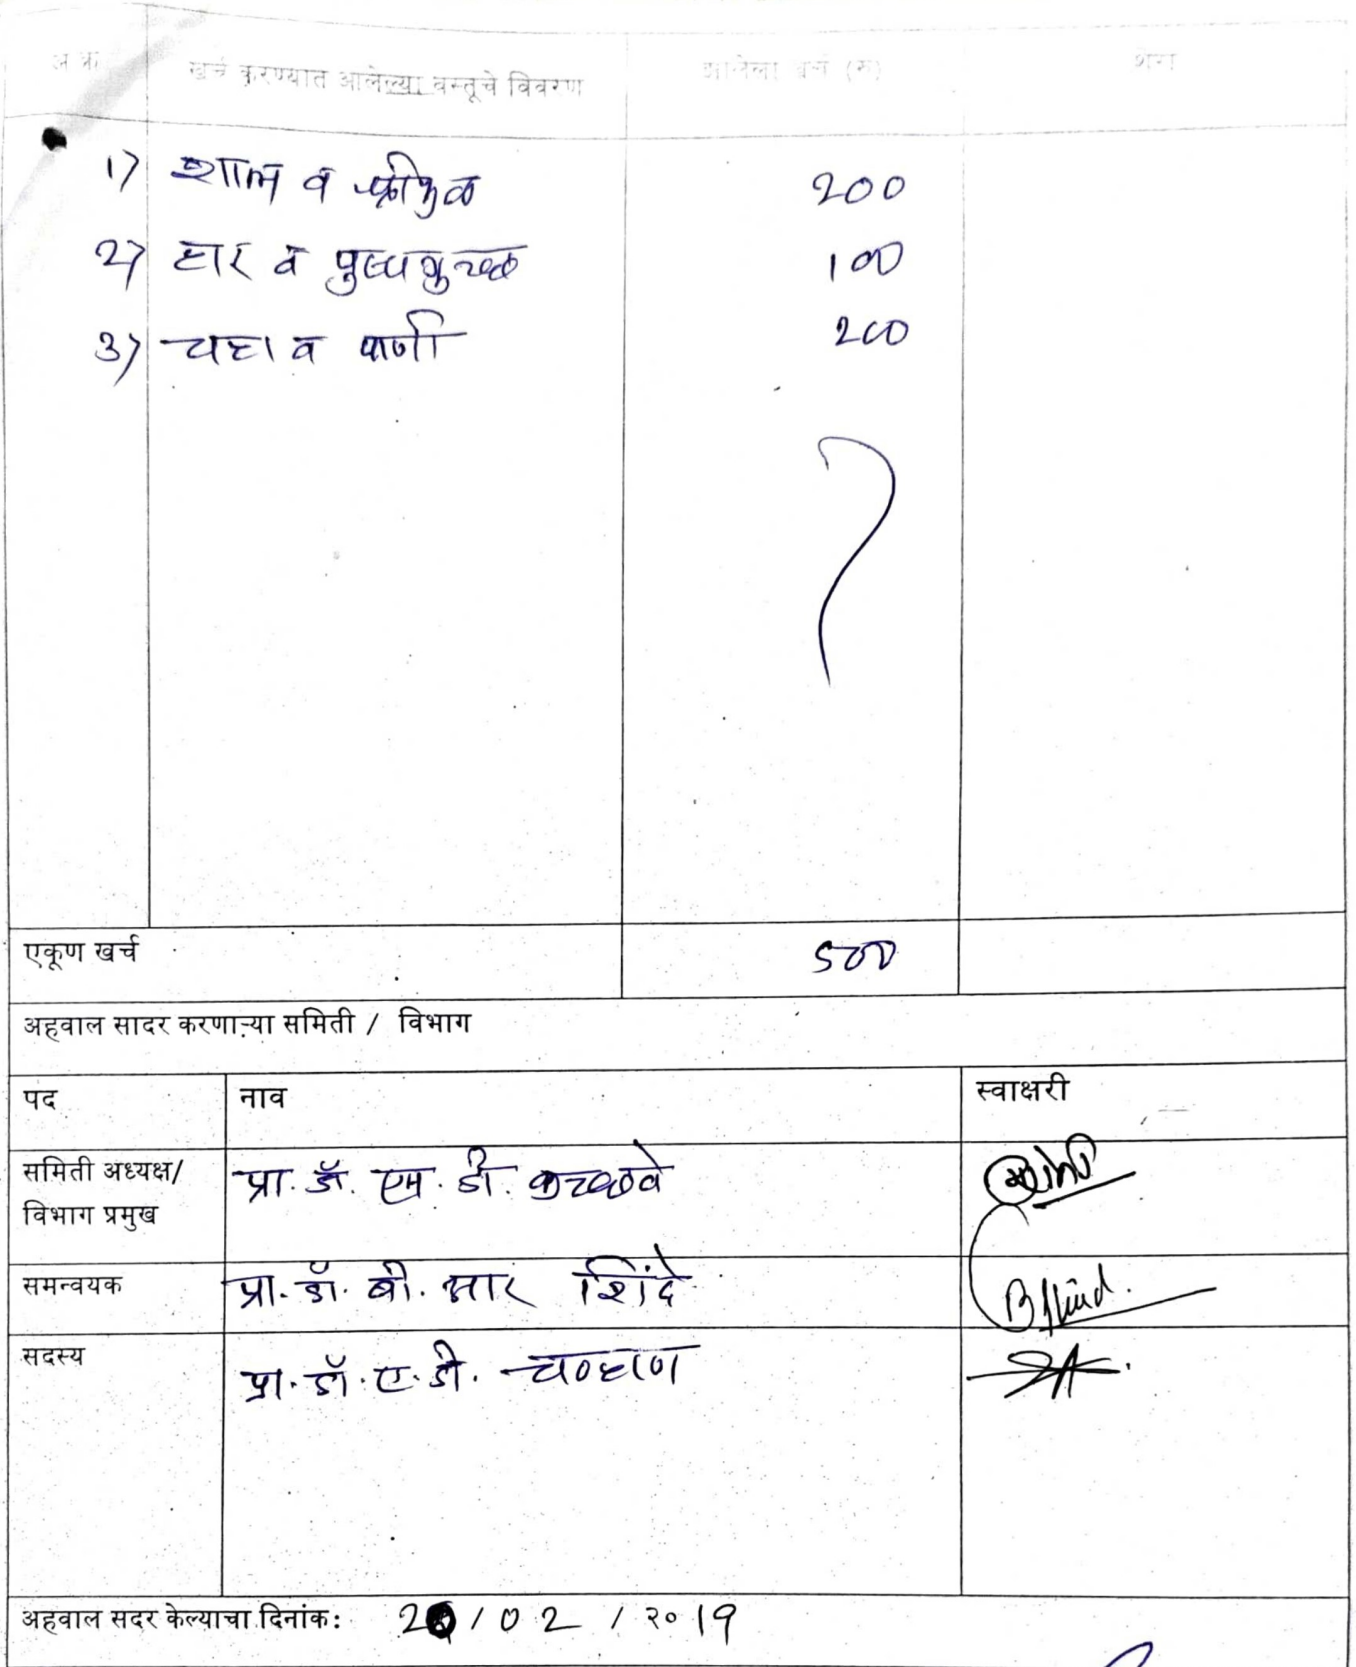 अ क्र खर्च करण्यात आलेल्या वस्तूचे विवरण झालेला खर्च (रु) शेरा
1) शाल व श्रीफळ 200
2) हार व पुष्पगुच्छ 100
3) चहा व पाणी 200
एकूण खर्च 500
अहवाल सादर करणाऱ्या समिती / विभाग
पद नाव स्वाक्षरी
समिती अध्यक्ष/ प्रा. डॉ. एम. डी. कच्छवे
विभाग प्रमुख
समन्वयक प्रा. डॉ. बी. आर शिंदे
सदस्य प्रा. डॉ. ए. डी. चव्हाण
अहवाल सदर केल्याचा दिनांक: /02/२०19